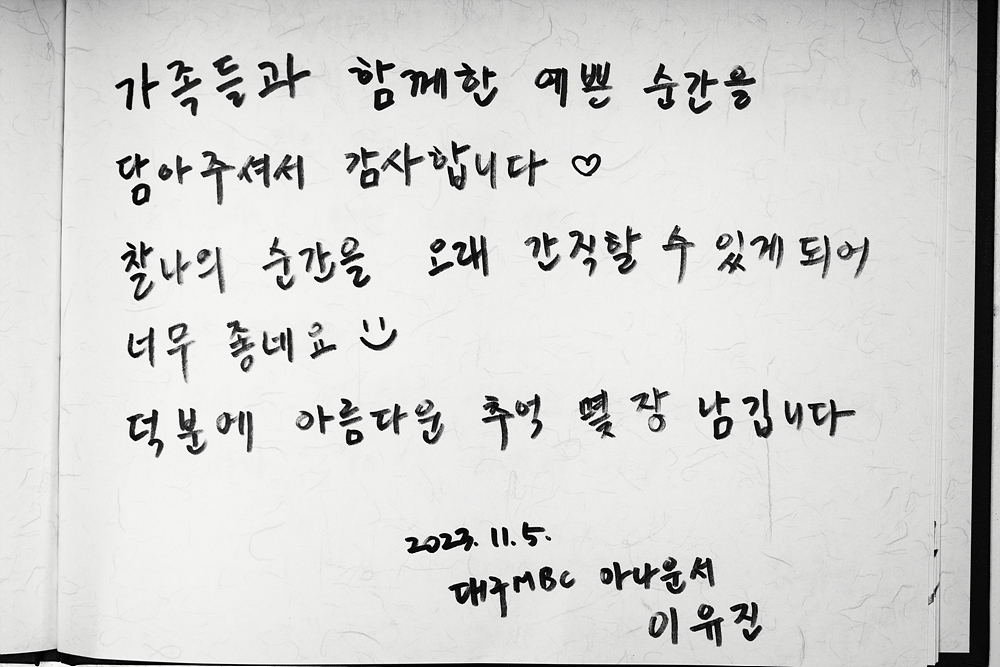 가족들과 함께한 예쁜 순간을
담아주셔서 감사합니다 ♡
찰나의 순간을 오래 간직할 수 있게 되어
너무 좋네요 :)
덕분에 아름다운 추억 몇 장 남깁니다
2023. 11. 5.
대구MBC 아나운서
이유진